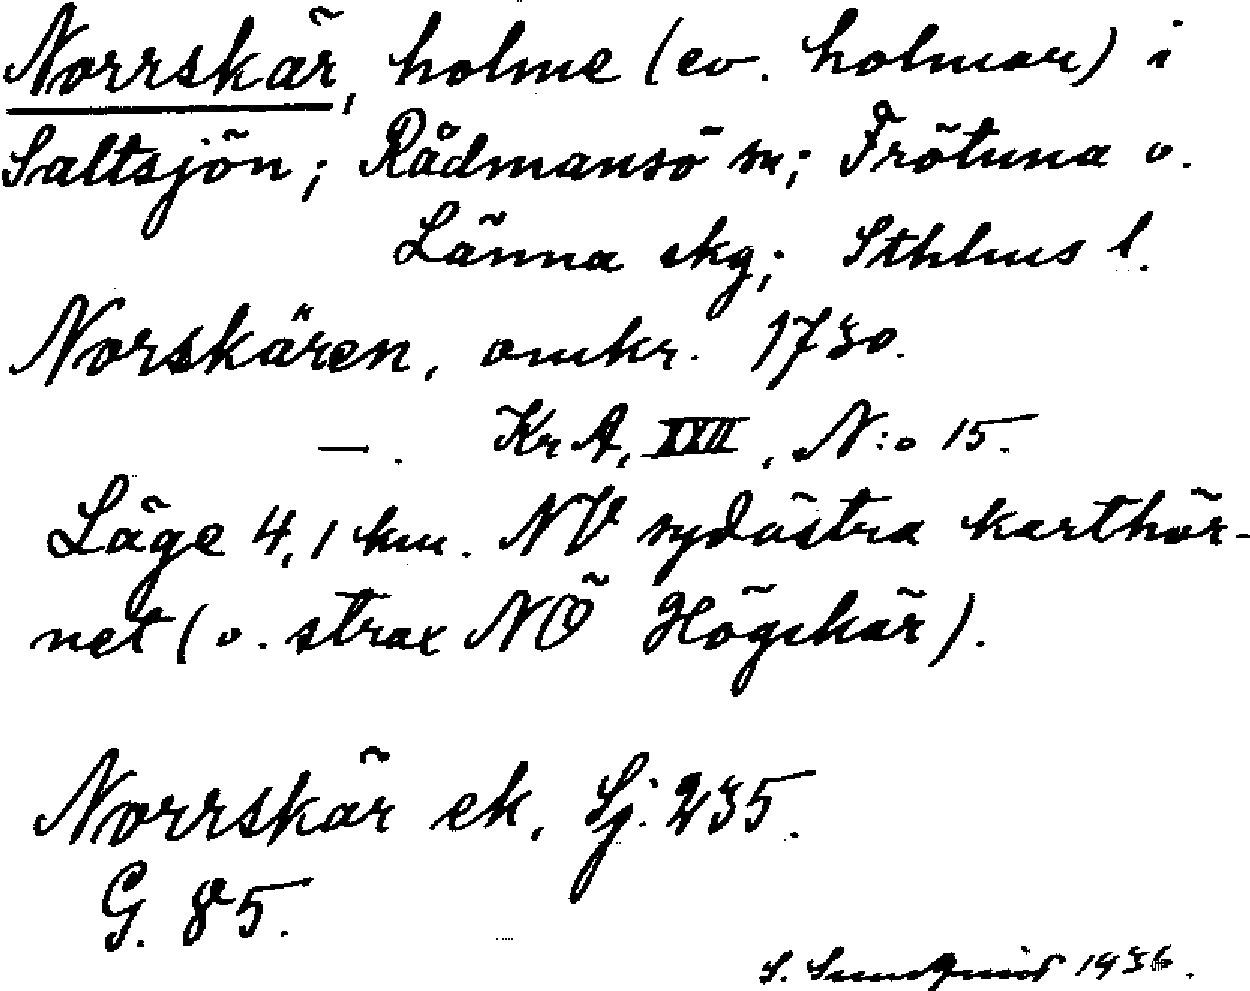 Norrskär, holme (ev. holmar) i
Saltsjön; Rådmansö sn; Frötuna o.
Länna skg; Sthlms l.
Norskären, omkr. 1730.
—. KrA, XVII, N:o 15.
Läge 4,1 km. NV sydöstra karthör-
net (o. strax NÖ Högskär).
Norrskär ek. Sj. 235.
G. 85.
S. Sundqvist 1936.